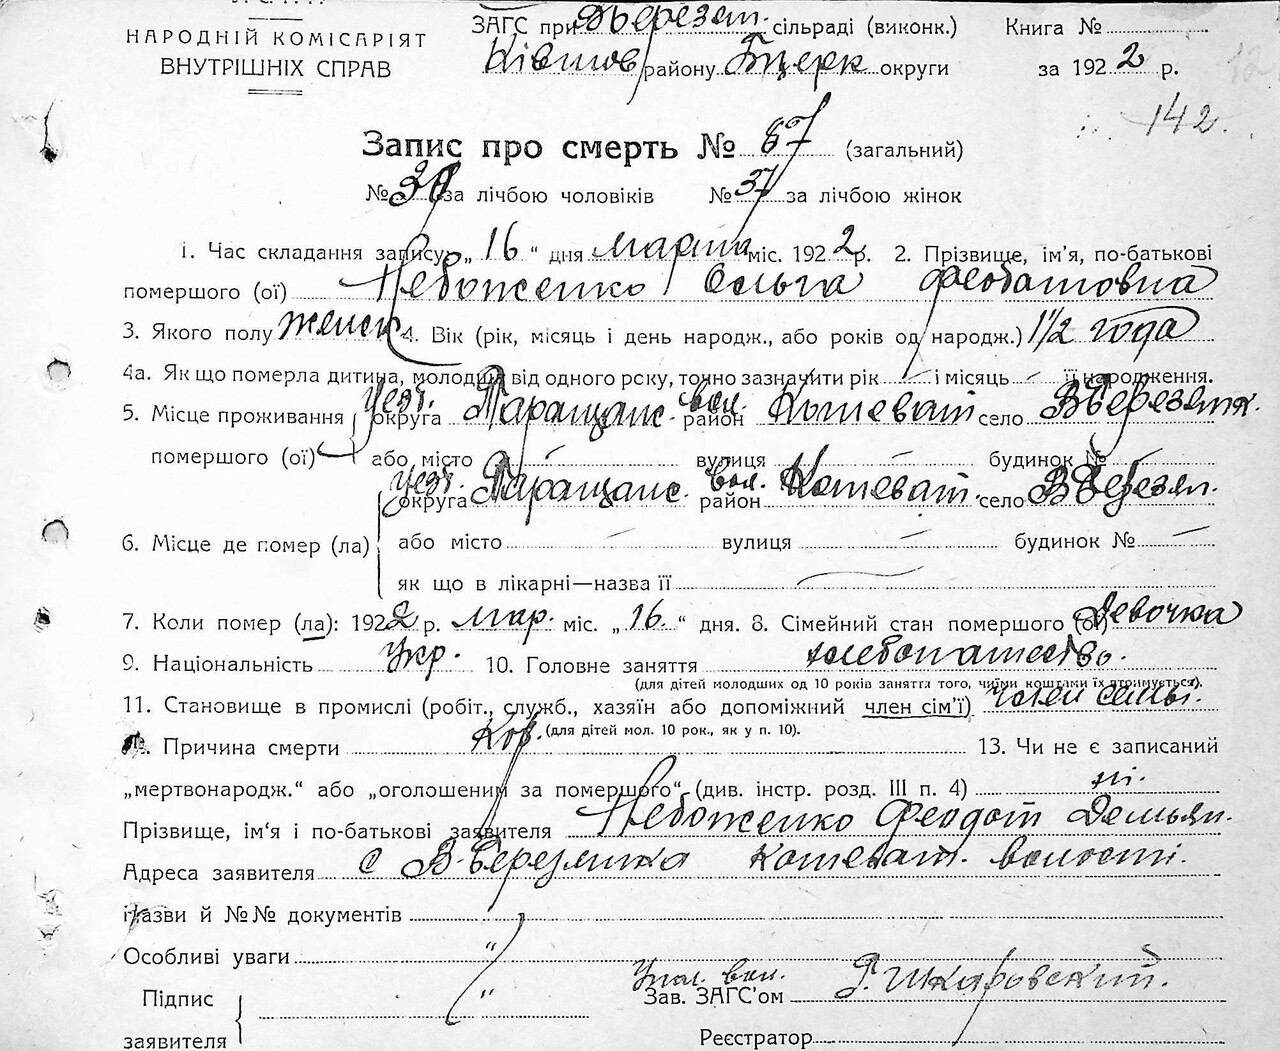 НАРОДНІЙ КОМІСАРІЯТ
ВНУТРІШНІХ СПРАВ
ЗАГС при В Березян. сільраді (виконк.)
Ківшов району Бцерк округи
Книга №
за 1922 р.
142
Запис про смерть № 67 (загальний)
№ 30 за лічбою чоловіків № 37 за лічбою жінок
1. Час складання запису: „16“ дня марта міс. 1922 р. 2. Прізвище, ім'я, по-батькові
помершого (ої) Небоженко Ольга Феодотовна
3. Якого полу женск 4. Вік (рік, місяць і день народж., або років од народж.) 1 1/2 года
4а. Як що померла дитина, молодша від одного року, точно зазначити рік — і місяць — її народження.
5. Місце проживання помершого (ої) уезд. округа Таращанс. вол. район Кошеват село ВБерезянк.
або місто — вулиця — будинок № —
6. Місце де помер (ла) уезд. округа Таращанс. вол. район Кошеват. село ВБерезян.
або місто — вулиця — будинок № —
як що в лікарні—назва її —
7. Коли помер (ла): 1922 р. мар. міс. „16.“ дня. 8. Сімейний стан помершого (ої) Девочка
9. Національність Укр. 10. Головне заняття хлебопашество.
(для дітей молодших од 10 років заняття того, чиїми коштами їх утримується).
11. Становище в промислі (робіт., служб., хазяїн або допоміжний член сім'ї) член семьі.
(для дітей мол. 10 рок., як у п. 10).
Причина смерти Кор. 13. Чи не є записаний
„мертвонародж.“ або „оголошеним за помершого“ (див. інстр. розд. III п. 4) ні.
Прізвище, ім'я і по-батькові заявителя Небоженко Феодот Демьян.
Адреса заявителя с В-Березянка Кошеват. волості.
Назви й №№ документів
Особливі уваги „
Підпис заявителя „
Упол. вол.
Зав. ЗАГС'ом Г. Шкаровский.
Реєстратор